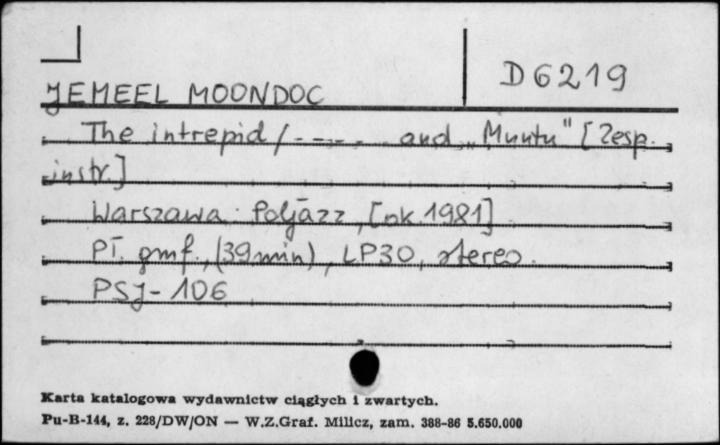 D6219
JEMEEL MOONDOC
The intrepid / ----- and „Muntu" [Zesp.
instr.]
Warszawa : Poljazz, [ok. 1981]
Pł. gmf., (39 min), LP30, stereo.
PSJ-106
Karta katalogowa wydawnictw ciągłych i zwartych.
Pu-B-144, z. 228/DW/ON — W.Z.Graf. Milicz, zam. 388-86 5.650.000